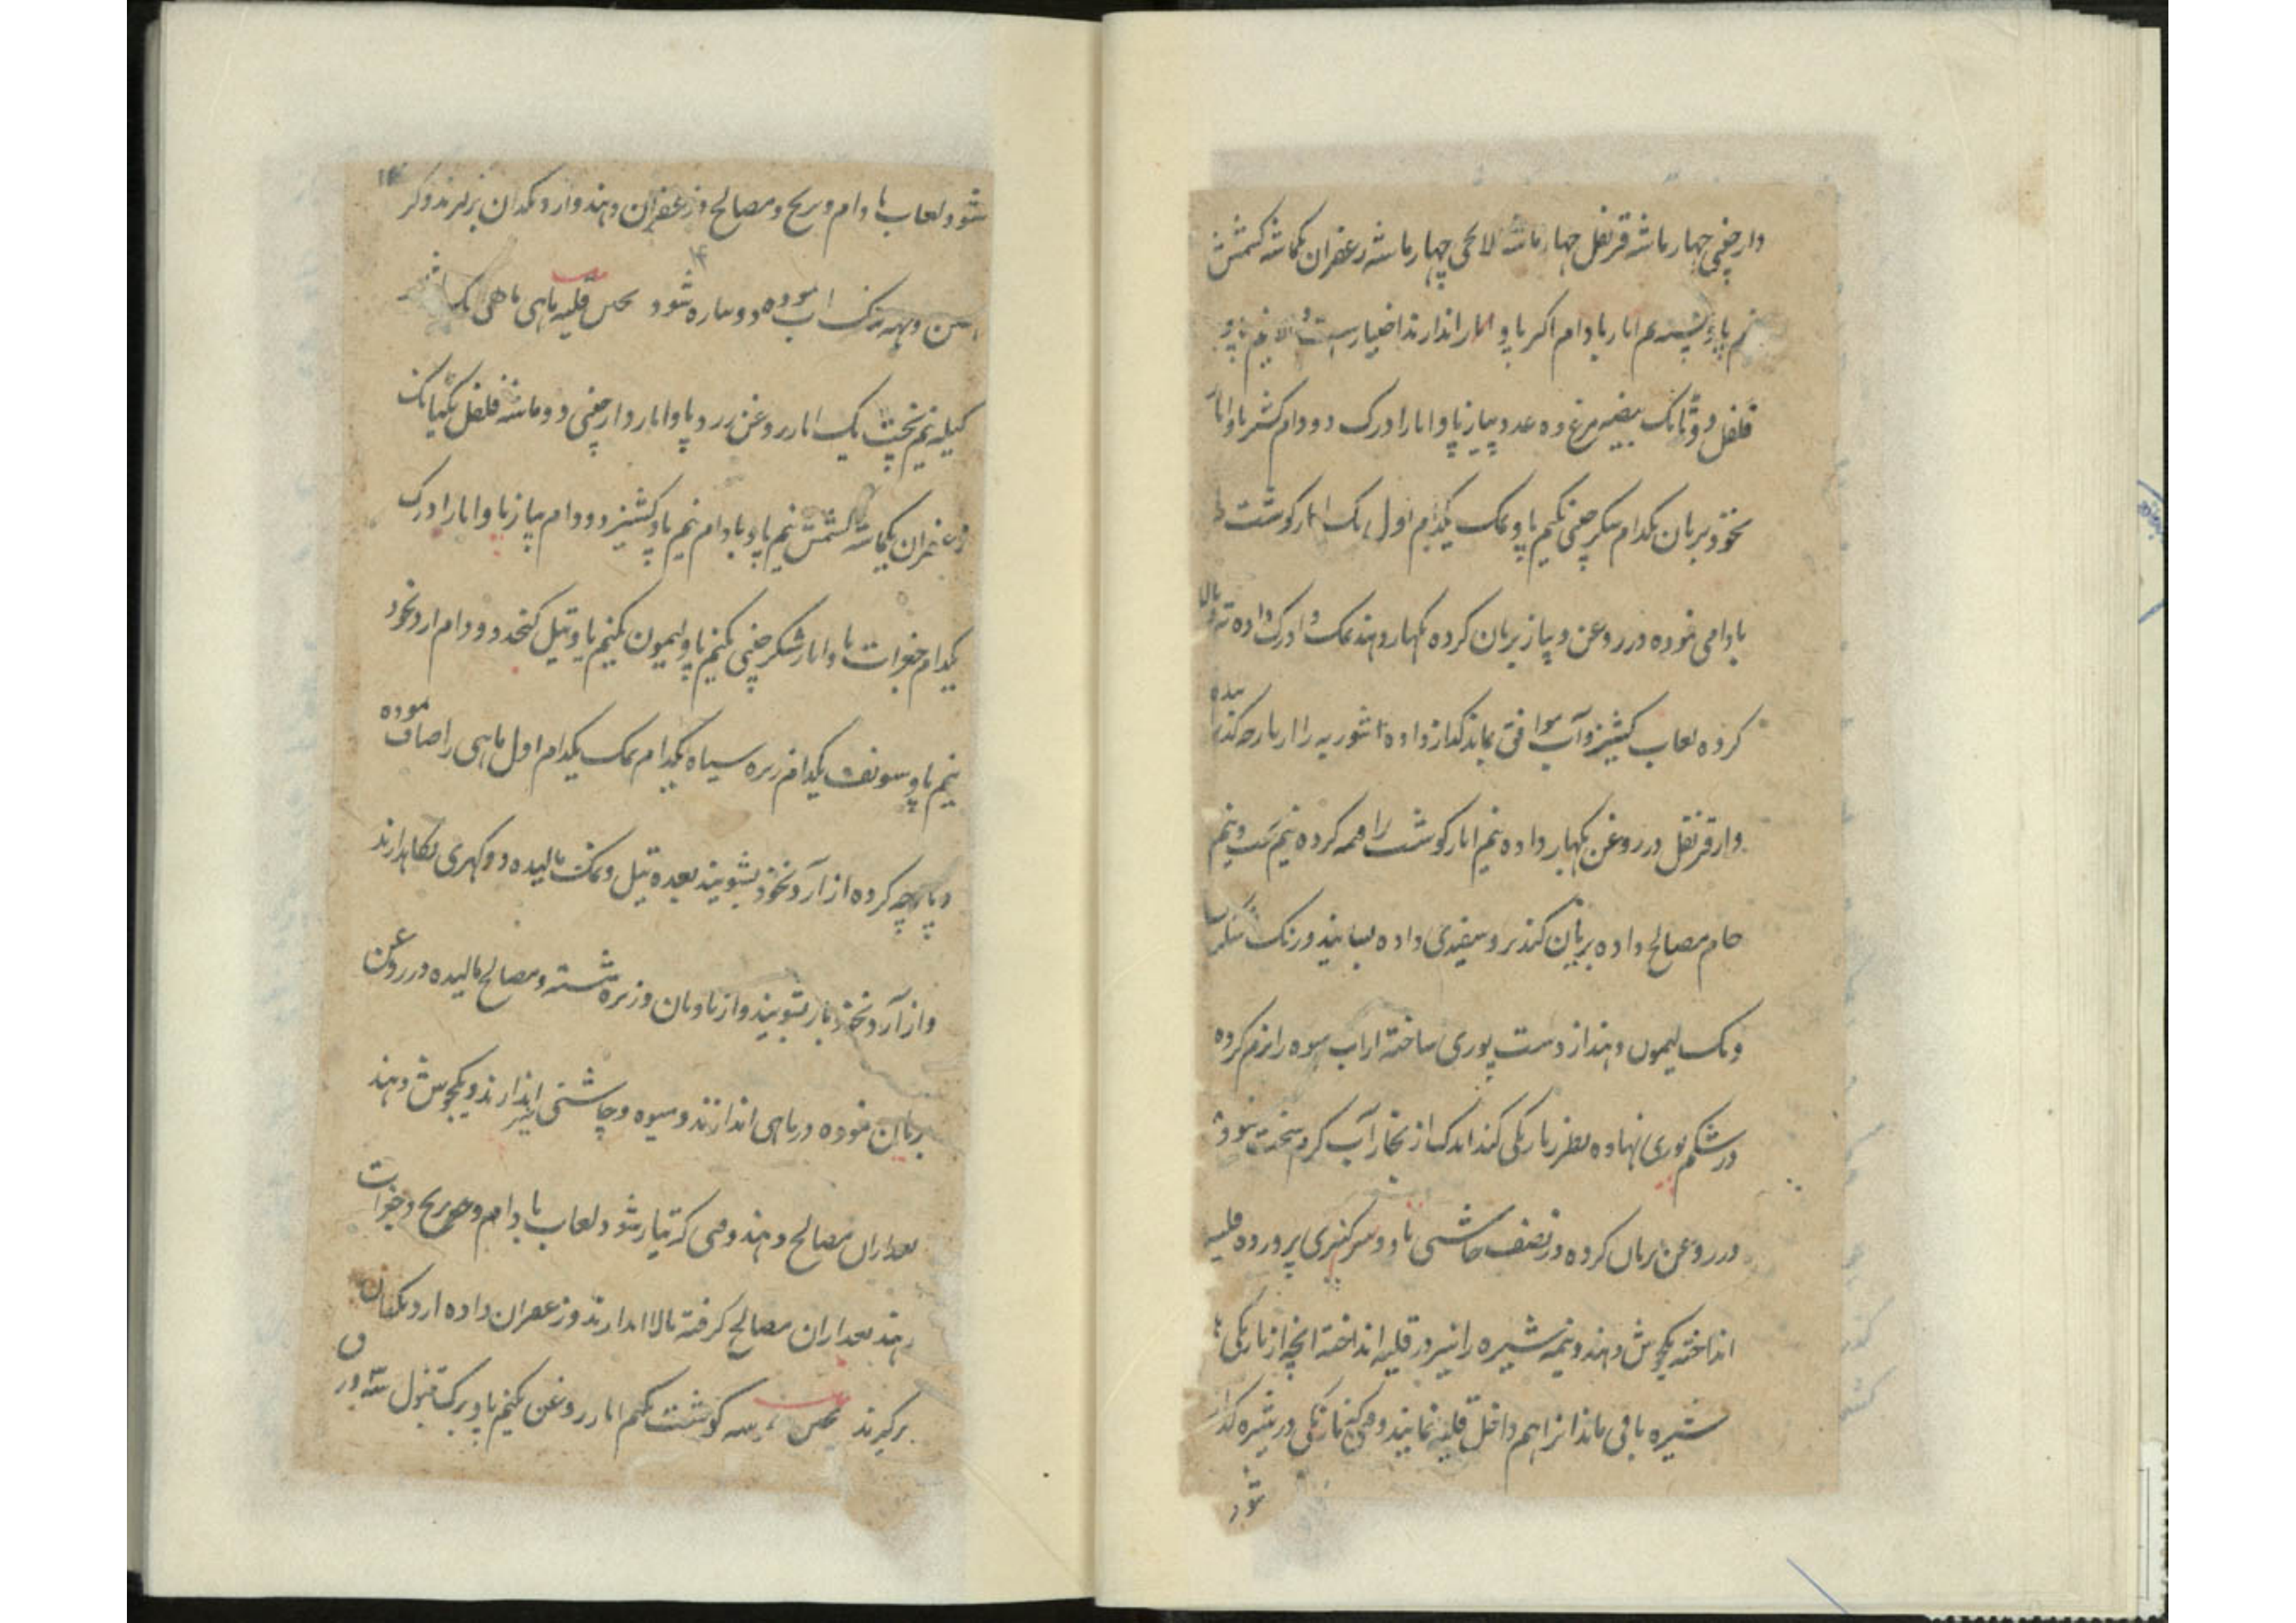 دارچینی چهار ماشه قرنفل چهار ماشه لاچی چهار ماشه زعفران یکماشه کشمش
نیم پاو پسته نیم اثار بادام اکر پاو اثار اندازند اختیارست والا نیم پاو
فلفل دو تانک بیضه مرغ ده عدد پیاز پاو اثار ادرک دو دام کشنیز پاو اثار
نخود بریان یکدام شکر چینی نیم پاو نمک یکدام اول یک اثار کوشت را
بادامی نموده در روغن و پیاز بریان کرده بکهار دهند نمک و ادرک داده ته و بالا
کرده لعاب کشنیز و آب موافق بماند کداز داده تا شوربه را از پارچه کذرانیده
دار قرنفل در روغن بکهار داده نیم اثار کوشت را قیمه کرده نیم پخت و نیم
خام مصالح داده بریان کنند بر و سفیدی داده بسایند و رنک
و نمک لیمون دهند از دست پوری ساخته از آب میوه را نرم کرده
در شکم پوری نهاده بطرز نارنکی کنند اندک از بخار آب کرم سخت شود
در روغن بریان کرده در نصف چاشنی پرورده قلیه
انداخته یکجوش دهند و نیمه شیره را نیز در قلیه انداخته انچه از نارنکی
شیره باقی ماند انرا هم داخل قلیه نمایند و نارنکی در شیره
شود
شود و لعاب بادام و بریح و مصالح و زعفران دهند و از دیکدان بر
شود جنس قلیه ماهی ماهی یک
کیله نیم پخت یک اثار روغن زرد پاو اثار دارچینی دو ماشه فلفل یک تانک
زعفران یکماشه کشمش نیم پاو بادام نیم پاو کشنیز دو دام پیاز پاو اثار ادرک
یکدام جغرات پاو اثار شکر چینی نیم پاو لیمون نیم پاو تیل کنجد دو دام ارد نخود
نیم پاو سونف یکدام زیره سیاه یکدام نمک یکدام اول ماهی را صاف نموده
و پارچه کرده از آرد نخود بشویند بعده تیل و نمک مالیده دو کهری نکاهدارند
و از آرد نخود باز بشویند و از بادیان و زیره شسته و مصالح مالیده در روغن
بریان نموده در ماهی اندازند و میوه و چاشنی نیز اندازند و یکجوش دهند
بعد از ان مصالح دهند وقتی که تیار شود لعاب بادام و بریح و جغرات
دهند بعد از ان مصالح کرفته بالا اندازند و زعفران داده از دیکدان
برکیرند جنس کوشت نیم اثار روغن نیم پاو برک تنبول